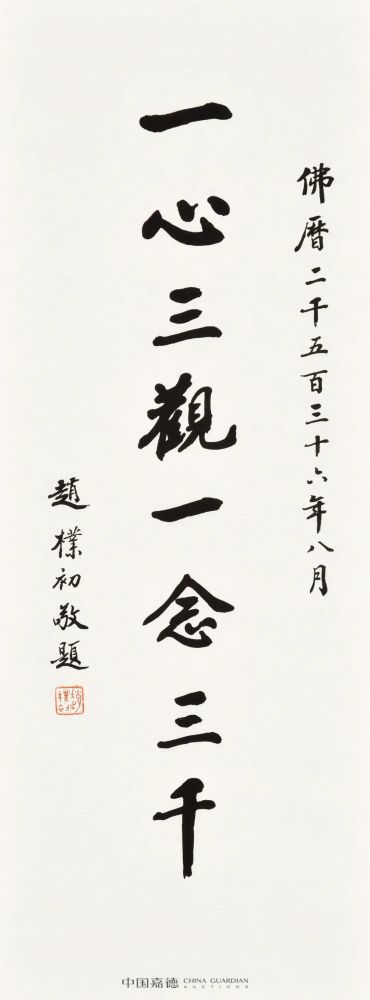 佛曆二千五百三十六年八月
一心三觀一念三千
趙樸初敬題
中国嘉德 CHINA GUARDIAN AUCTIONS